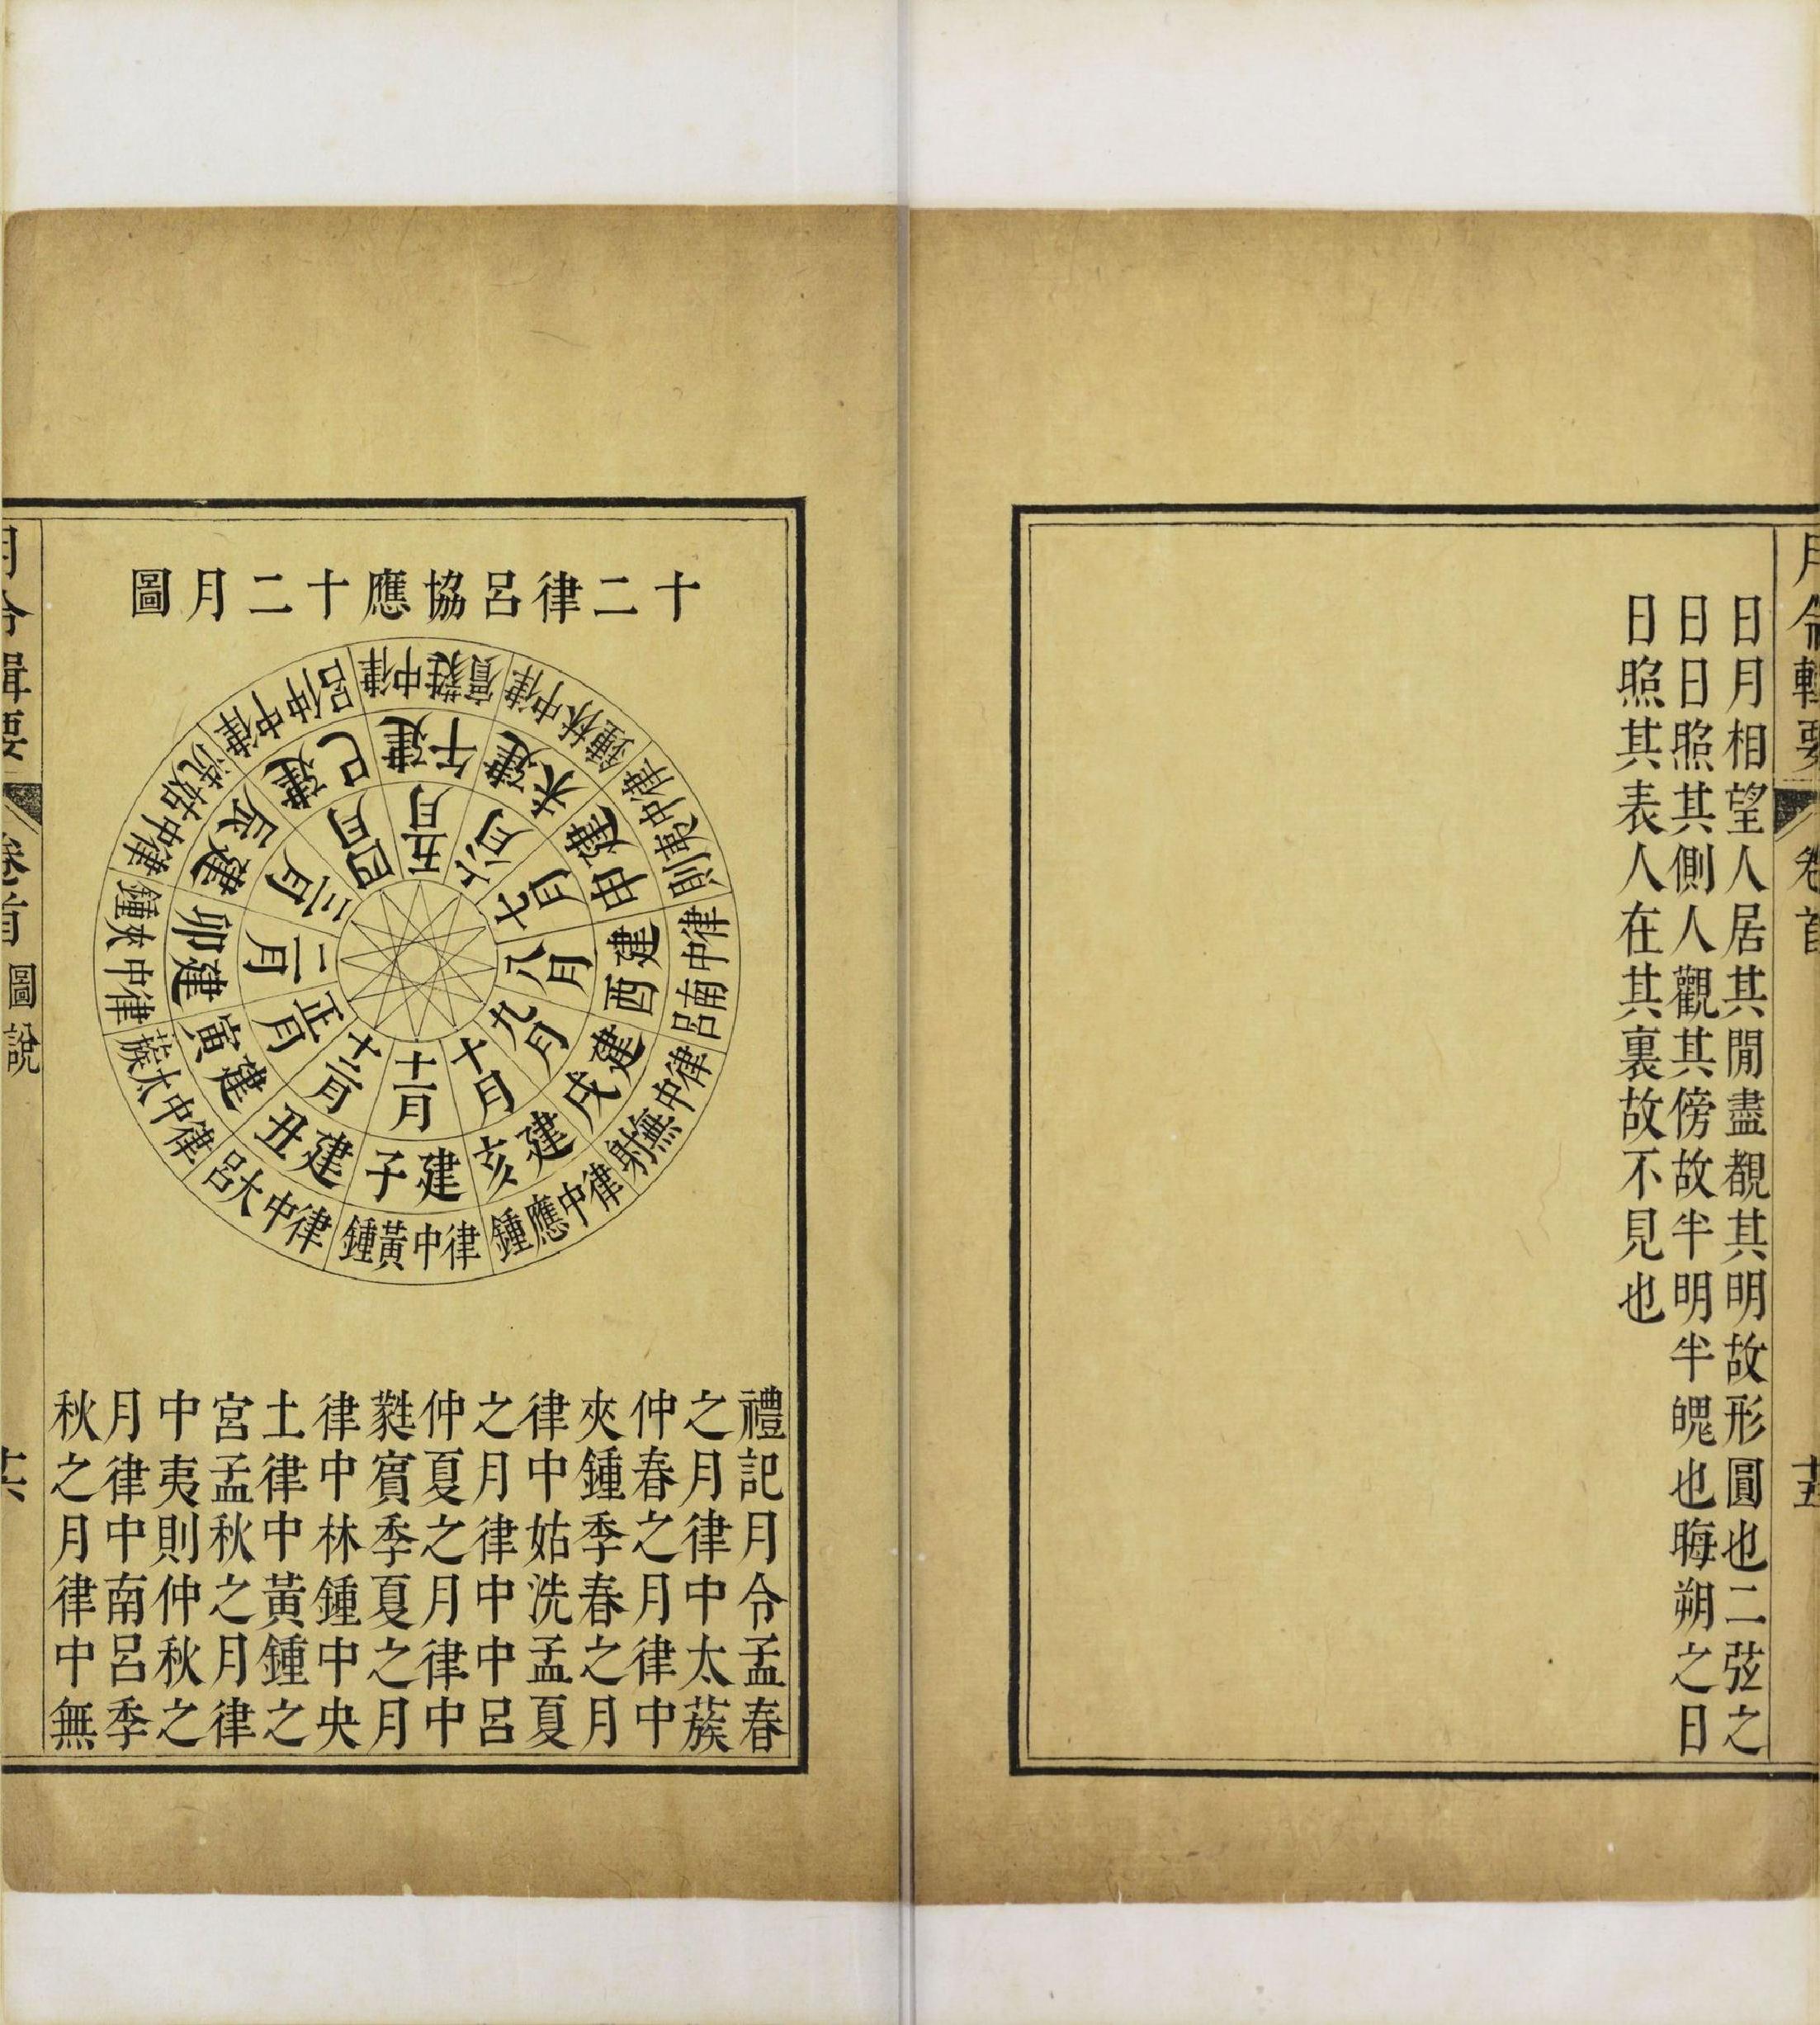 月令輯要
卷首
十五
日月相望人居其間盡覩其明故形圓也二弦之
日日照其側人觀其傍故半明半魄也晦朔之日
日照其表人在其裏故不見也
十二律呂協應十二月圖
五月
建午
律中蕤賓
六月
建未
律中林鍾
七月
建申
律中夷則
八月
建酉
律中南呂
九月
建戌
律中無射
十月
建亥
律中應鍾
十一月
建子
律中黃鍾
十二月
建丑
律中大呂
正月
建寅
律中太蔟
二月
建卯
律中夾鍾
三月
建辰
律中姑洗
四月
建巳
律中仲呂
禮記月令孟春
之月律中太蔟
仲春之月律中
夾鍾季春之月
律中姑洗孟夏
之月律中中呂
仲夏之月律中
蕤賓季夏之月
律中林鍾中央
土律中黃鍾之
宮孟秋之月律
中夷則仲秋之
月律中南呂季
秋之月律中無
月令輯要
卷首
圖說
十六